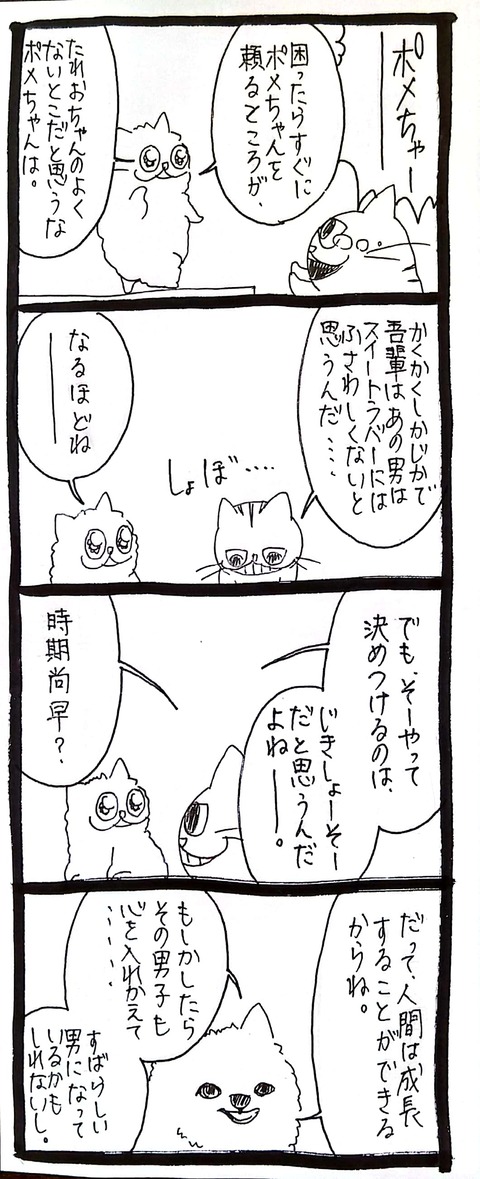 ポメちゃー
困ったらすぐに
ポメちゃんを
頼るところが、
たれおちゃんのよく
ないとこだと思うな
ポメちゃんは。
かくかくしかじかで
吾輩はあの男は
スイートラバーには
ふさわしくないと
思うんだ....
しょぼ....
なるほどね
ー
でも、そーやって
決めつけるのは、
じきしょーそー
だと思うんだ
よねー。
時期尚早?
だって、人間は成長
することができる
からね。
もしかしたら
その男子も
心を入れかえて
......
すばらしい
男になって
いるかも
しれないし。